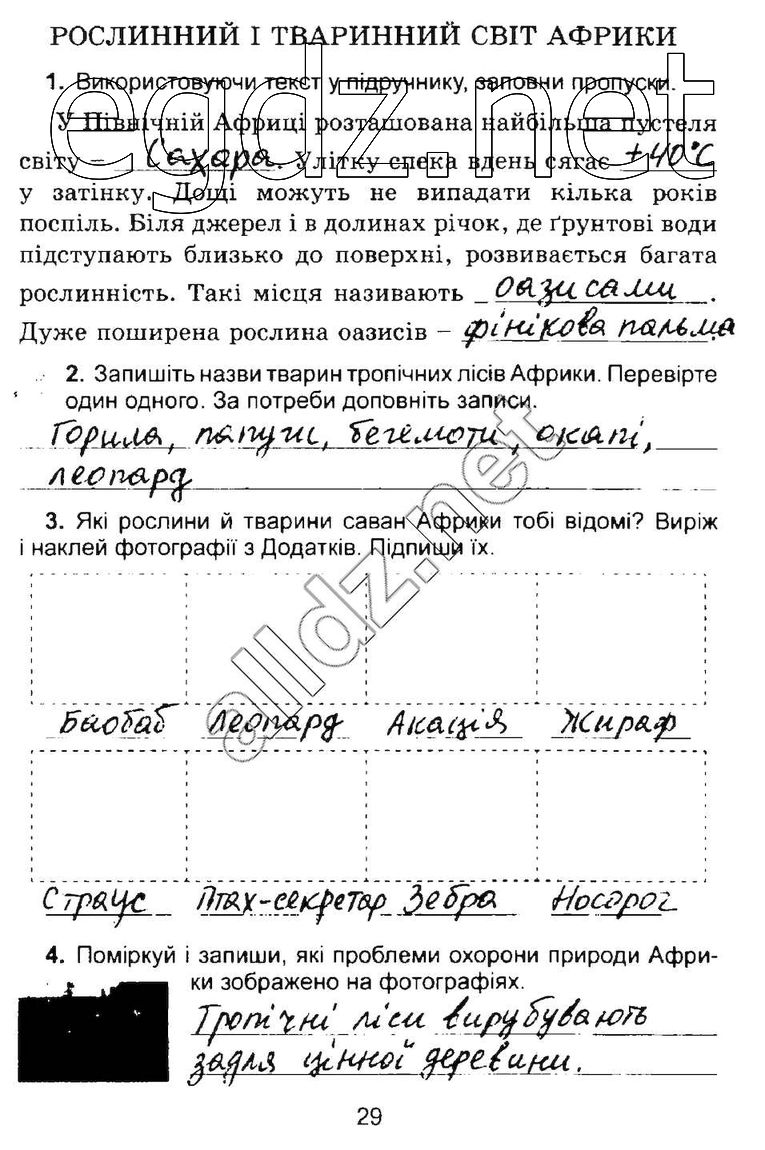 РОСЛИННИЙ І ТВАРИННИЙ СВІТ АФРИКИ
1. Використовуючи текст у підручнику, заповни пропуски.
egdz.net
У Північній Африці розташована найбільша пустеля
світу – Сахара. Улітку спека вдень сягає ±40°С
у затінку. Дощі можуть не випадати кілька років
поспіль. Біля джерел і в долинах річок, де ґрунтові води
підступають близько до поверхні, розвивається багата
рослинність. Такі місця називають оазисами.
Дуже поширена рослина оазисів – фінікова пальма.
2. Запишіть назви тварин тропічних лісів Африки. Перевірте
один одного. За потреби доповніть записи.
Горила, папуги, бегемоти, окапі,
леопард
alldz.net
3. Які рослини й тварини саван Африки тобі відомі? Виріж
і наклей фотографії з Додатків. Підпиши їх.
Баобаб Леопард Акація Жираф
Страус Птах-секретар Зебра Носорог
4. Поміркуй і запиши, які проблеми охорони природи Афри-
ки зображено на фотографіях.
Тропічні ліси вирубувають
задля цінної деревини.
29